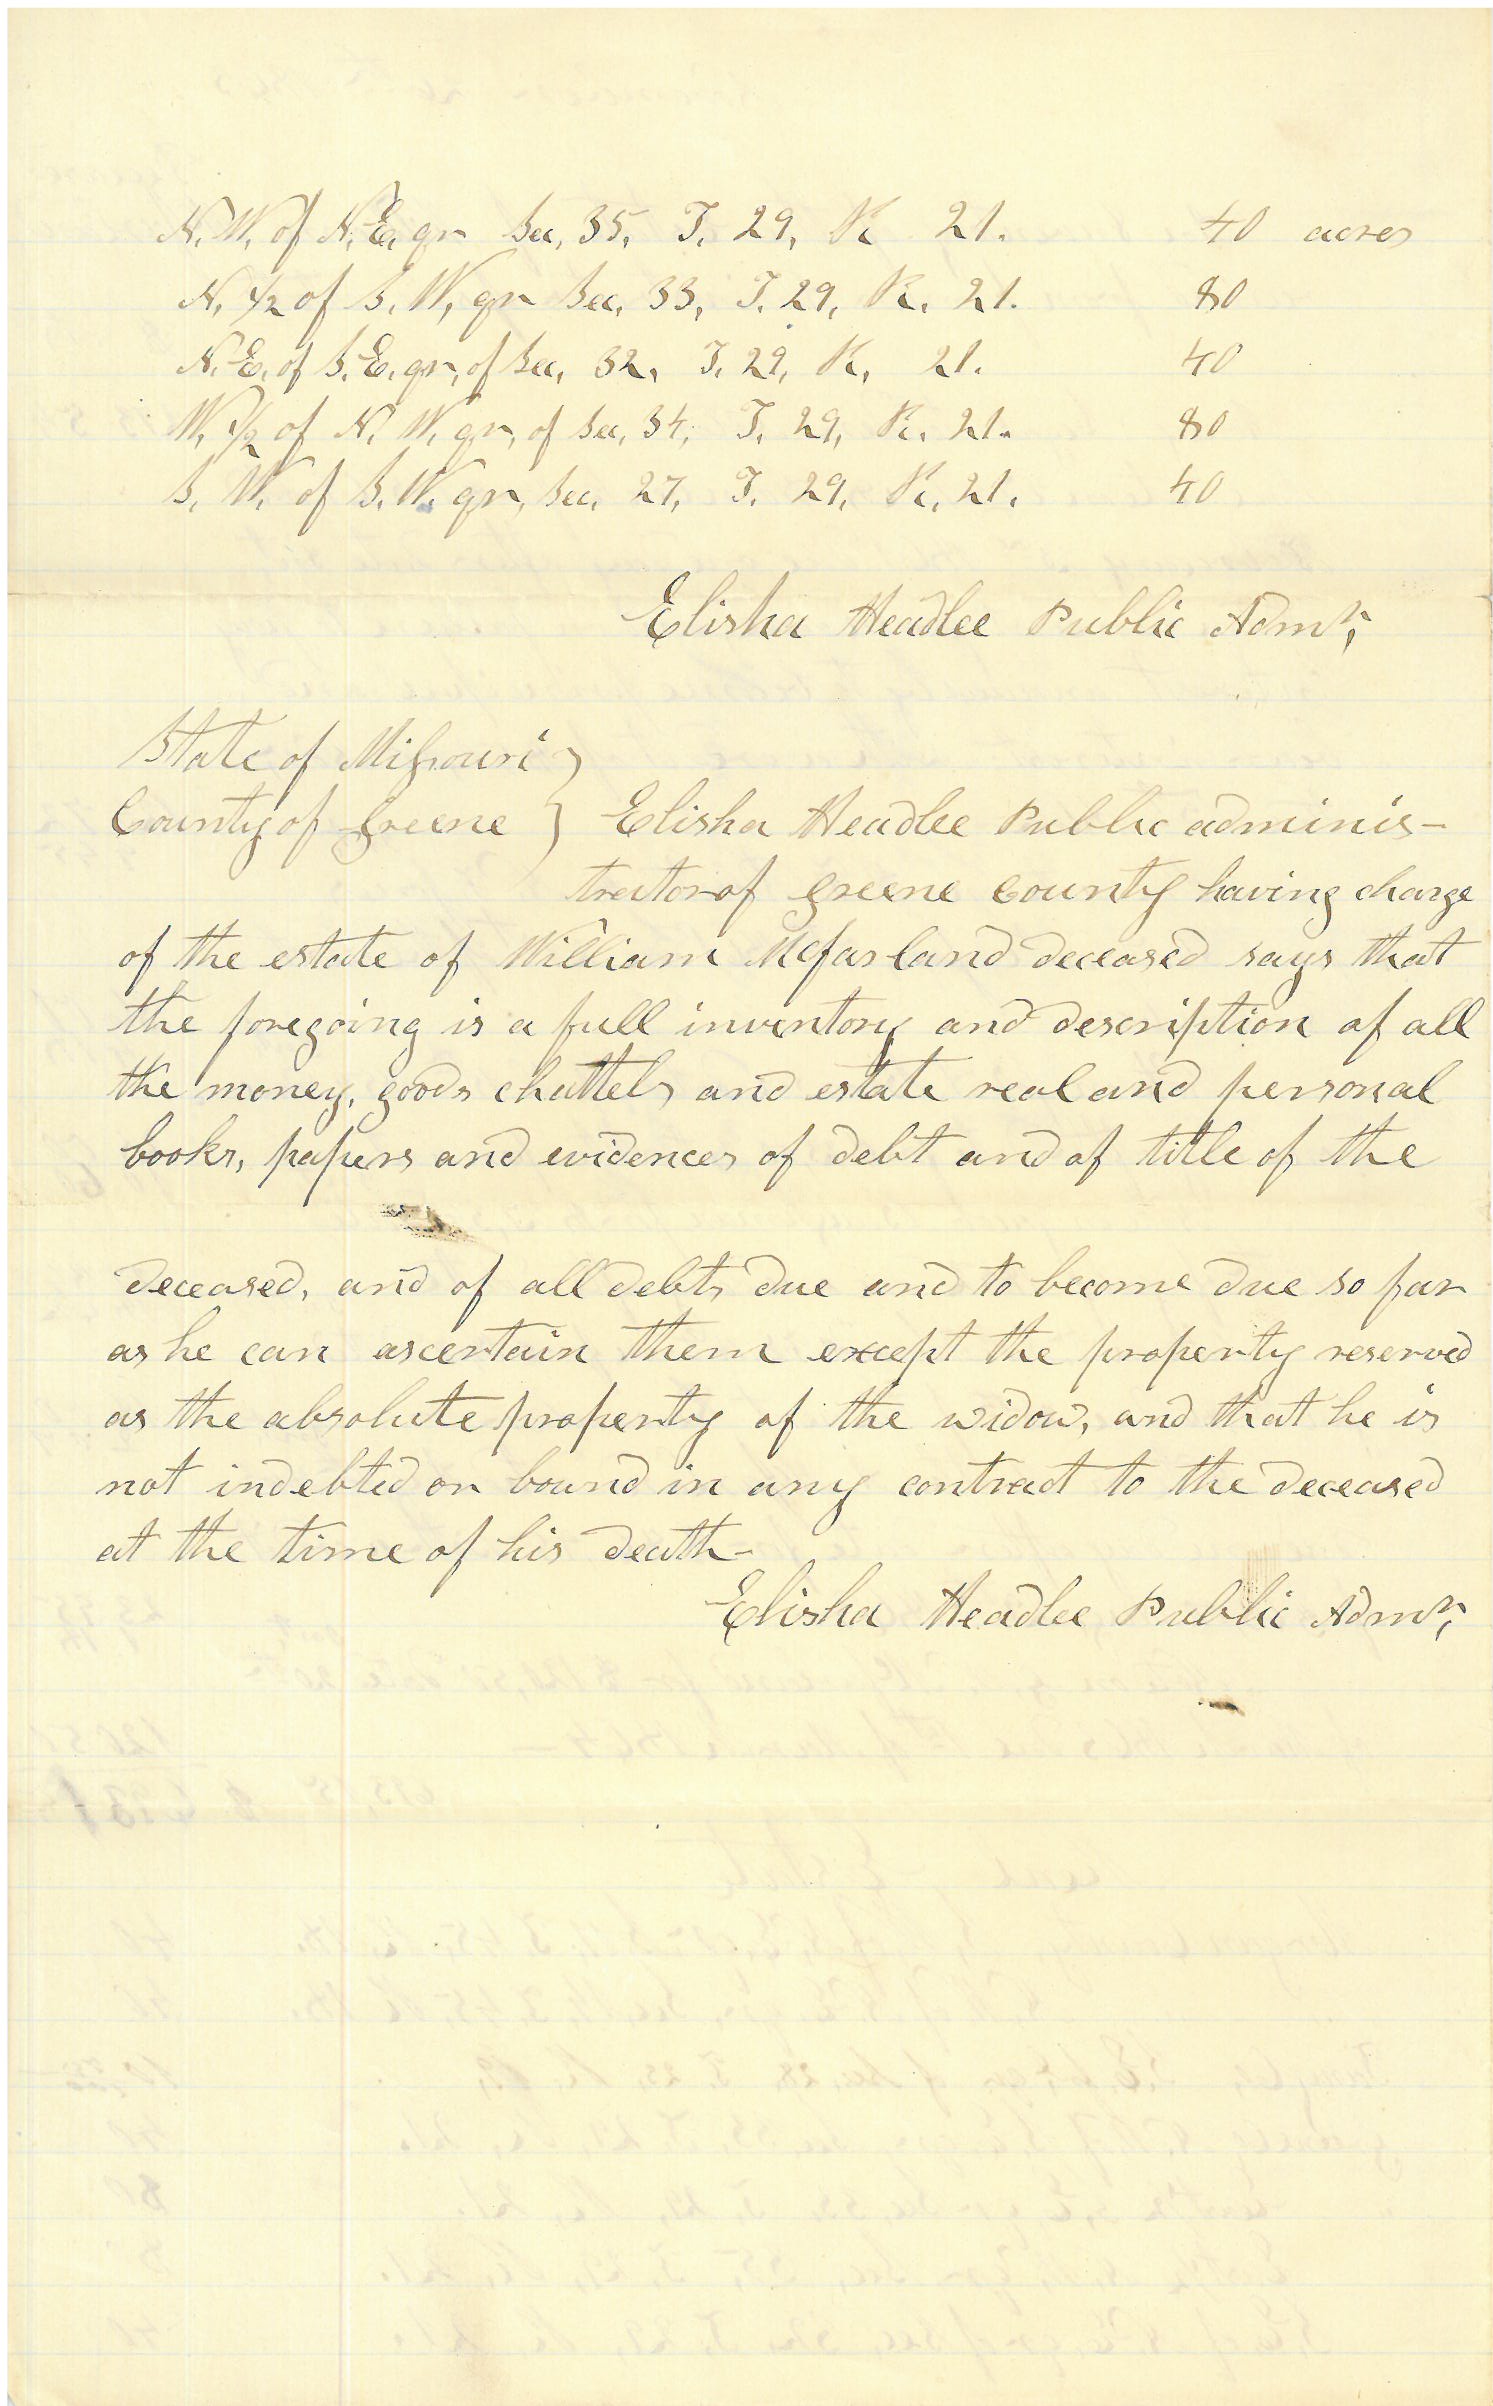 N. W. of N. E. qr Sec, 35, T. 29, R 21. 40 acres
N, 1/2 of S. W, qr Sec, 33, T. 29, R. 21. 80
N. E. of S. E. qr, of Sec, 32, T. 29, R, 21. 40
W, 1/2 of N. W. qr, of Sec, 34, T, 29, R. 21. 80
S, W. of S. W. qr, Sec. 27, T. 29, R, 21. 40
Elisha Headlee Public Admr,
State of Missouri }
County of Greene } Elisha Headlee Public adminis-
trator of Greene County having charge
of the estate of William Mcfarland deceased says that
the foregoing is a full inventory and description of all
the money, goods chattels and estate real and personal
books, papers and evidences of debt and of title of the
deceased, and of all debts due and to become due so far
as he can ascertain them except the property reserved
as the absolute property of the widow, and that he is
not indebted or bound in any contract to the deceased
at the time of his death-
Elisha Headlee Public Admr,